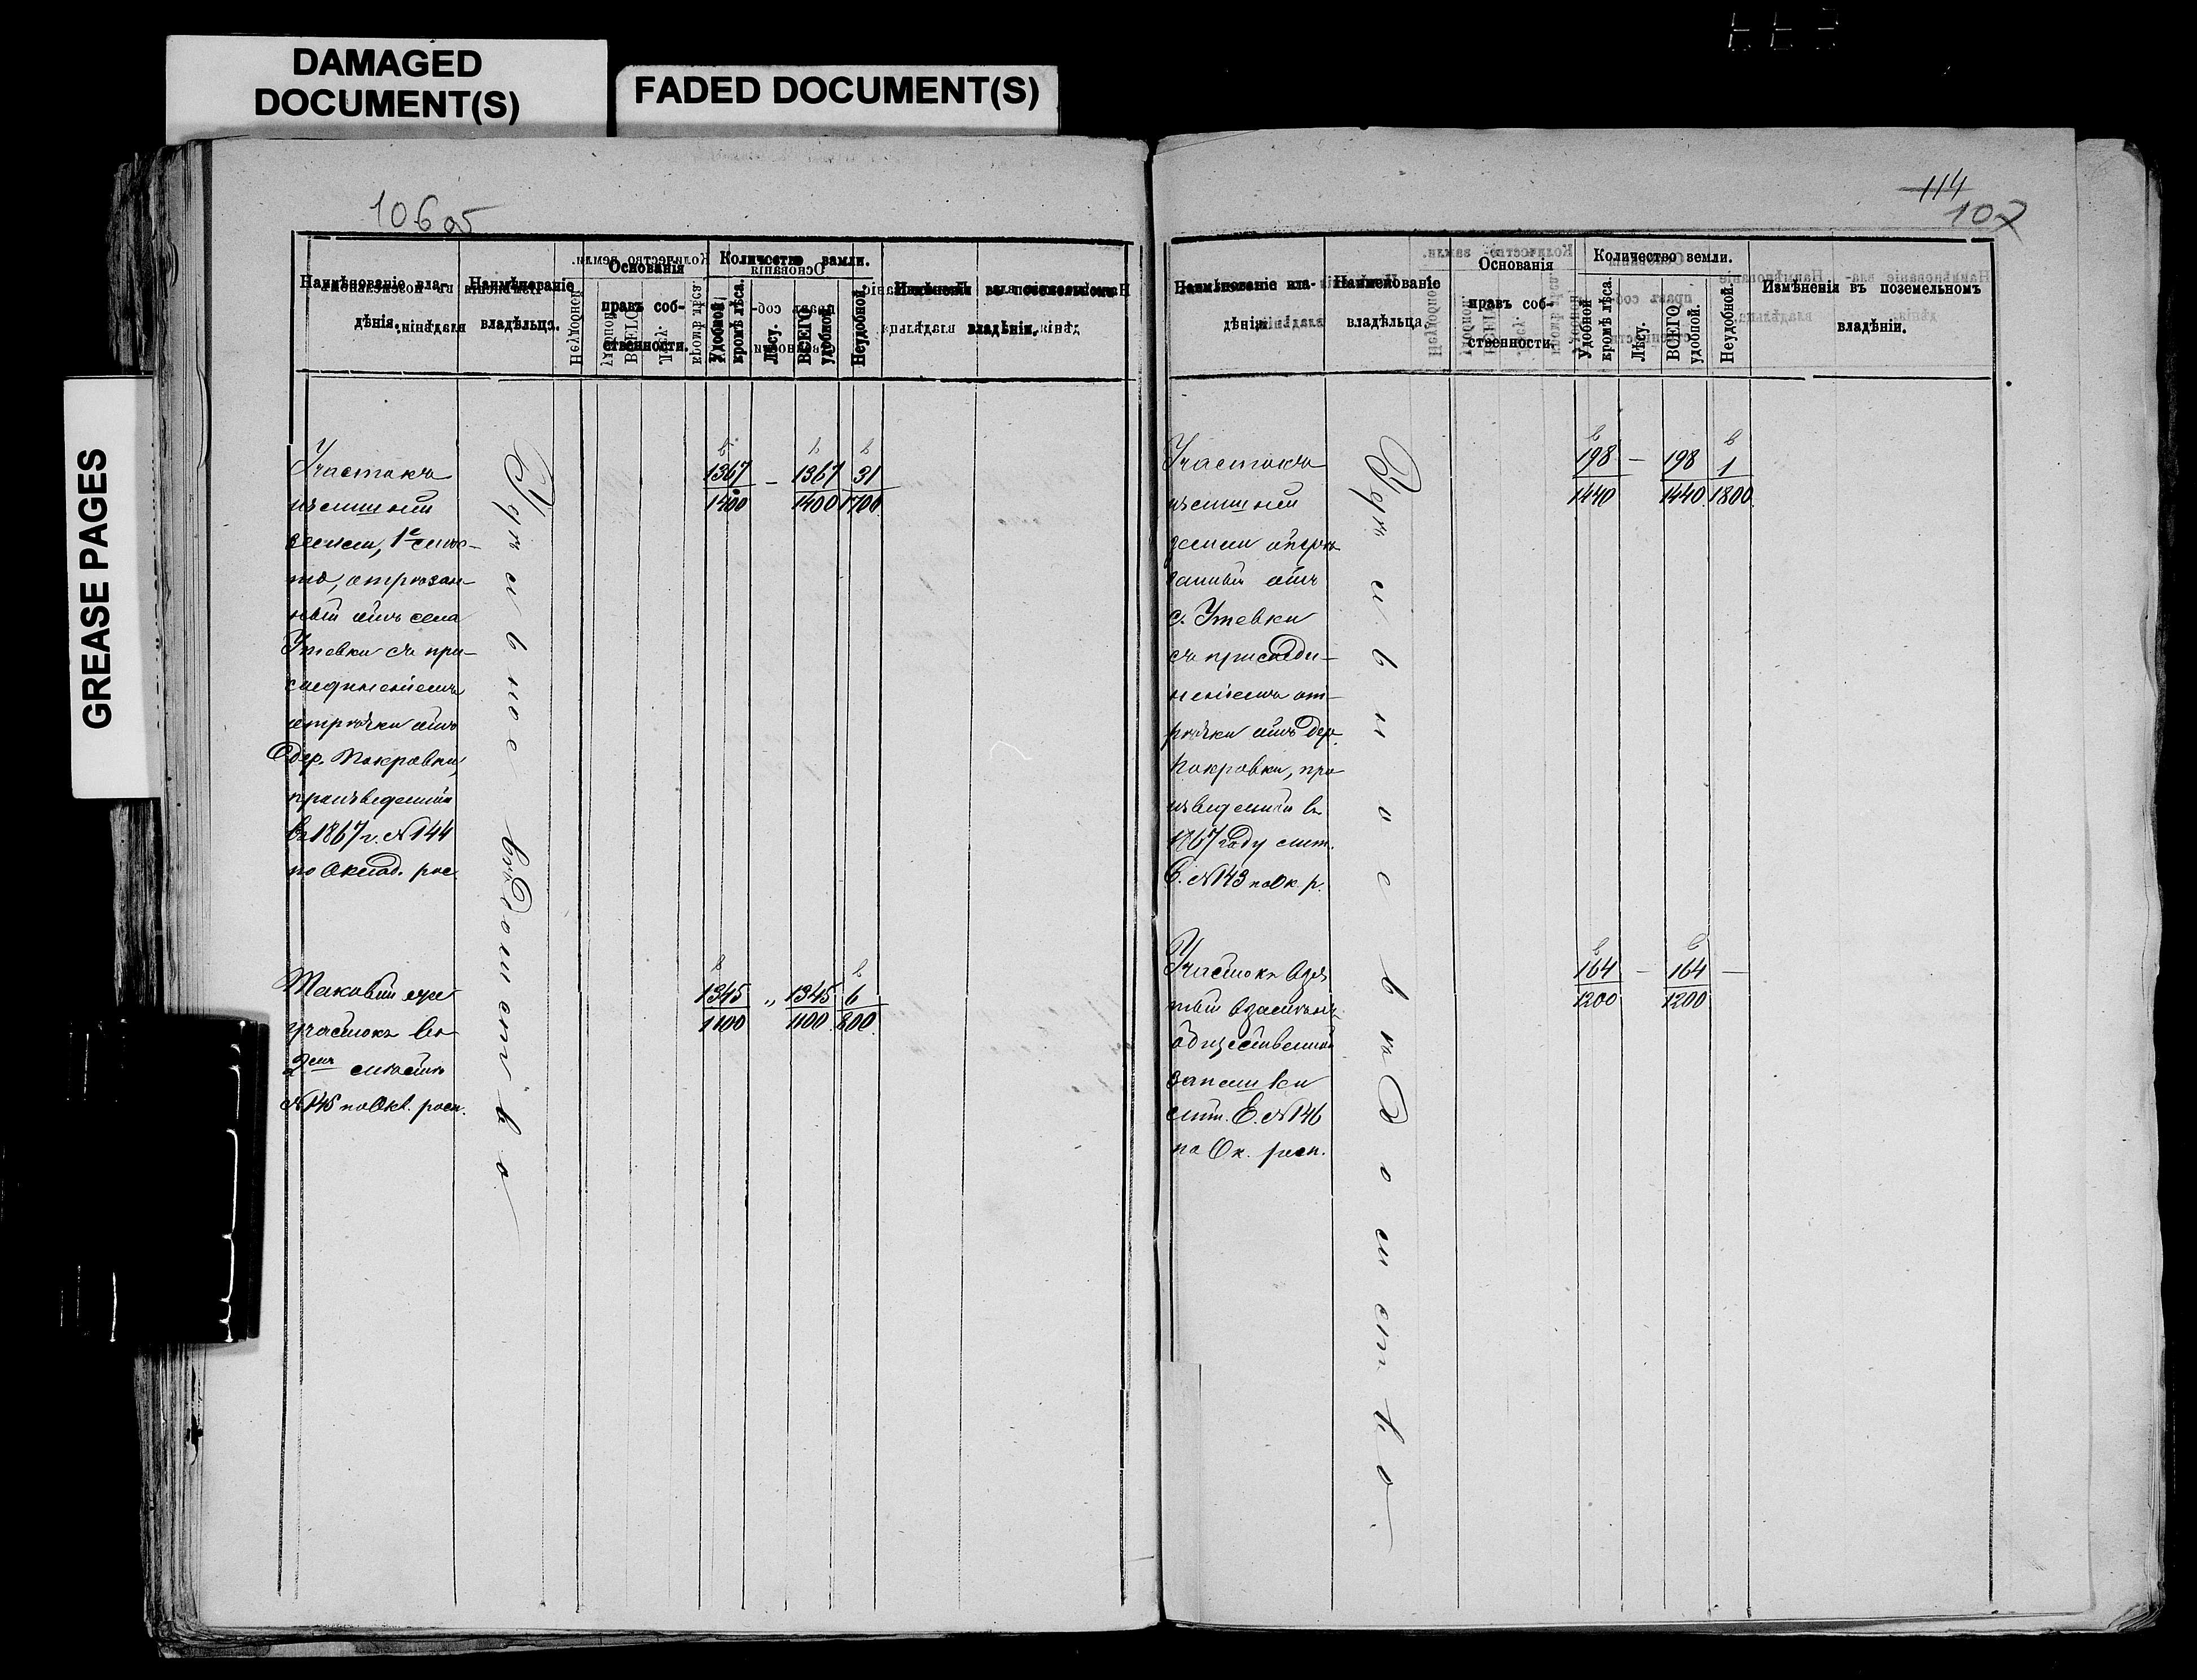 DAMAGED
DOCUMENT(S)
FADED DOCUMENT(S)
GREASE PAGES
106 об
Наименованіе вла-
дѣнія.
Наименованіе
владѣльца.
Основанія
правъ соб-
ственности.
Количество земли.
Удобной
кромѣ лѣса.
Лѣсу.
ВСЕГО
удобной.
Неудобной.
Измѣненія въ поземельномъ
владѣніи.
Участокъ
излишней
земли, 1е мѣс-
то, отрѣзан-
ный отъ села
Утевки съ при-
соединеніемъ
отрѣзки отъ
дер. Покровки,
произведенной
въ 1867 г. №144
по Оклад. рос.
Удѣльное вѣдомство
1367 – 1367 31
1400 1400 1700
Таковый же
участокъ во
2мъ мѣстѣ
№145 по Окл. росп.
1345 „ 1345 6
1100 1100 800
114
107
Наименованіе вла-
дѣнія.
Наименованіе
владѣльца.
Основанія
правъ соб-
ственности.
Количество земли.
Удобной
кромѣ лѣса.
Лѣсу.
ВСЕГО
удобной.
Неудобной.
Измѣненія въ поземельномъ
владѣніи.
Участокъ
излишней
земли отрѣ-
занный отъ
с. Утевки
съ присоеди-
неніемъ от-
рѣзки отъ дер.
Покровки, про
изведенной въ
1867 году лит.
№143 по Ок. р.
Удѣльное вѣдомство.
198 – 198 1
1440 1440 1800
Участокъ взя
тый взамѣнъ
общественной
запашки
лит. Е. №146
по Ок. росп.
164 – 164 –
1200 1200